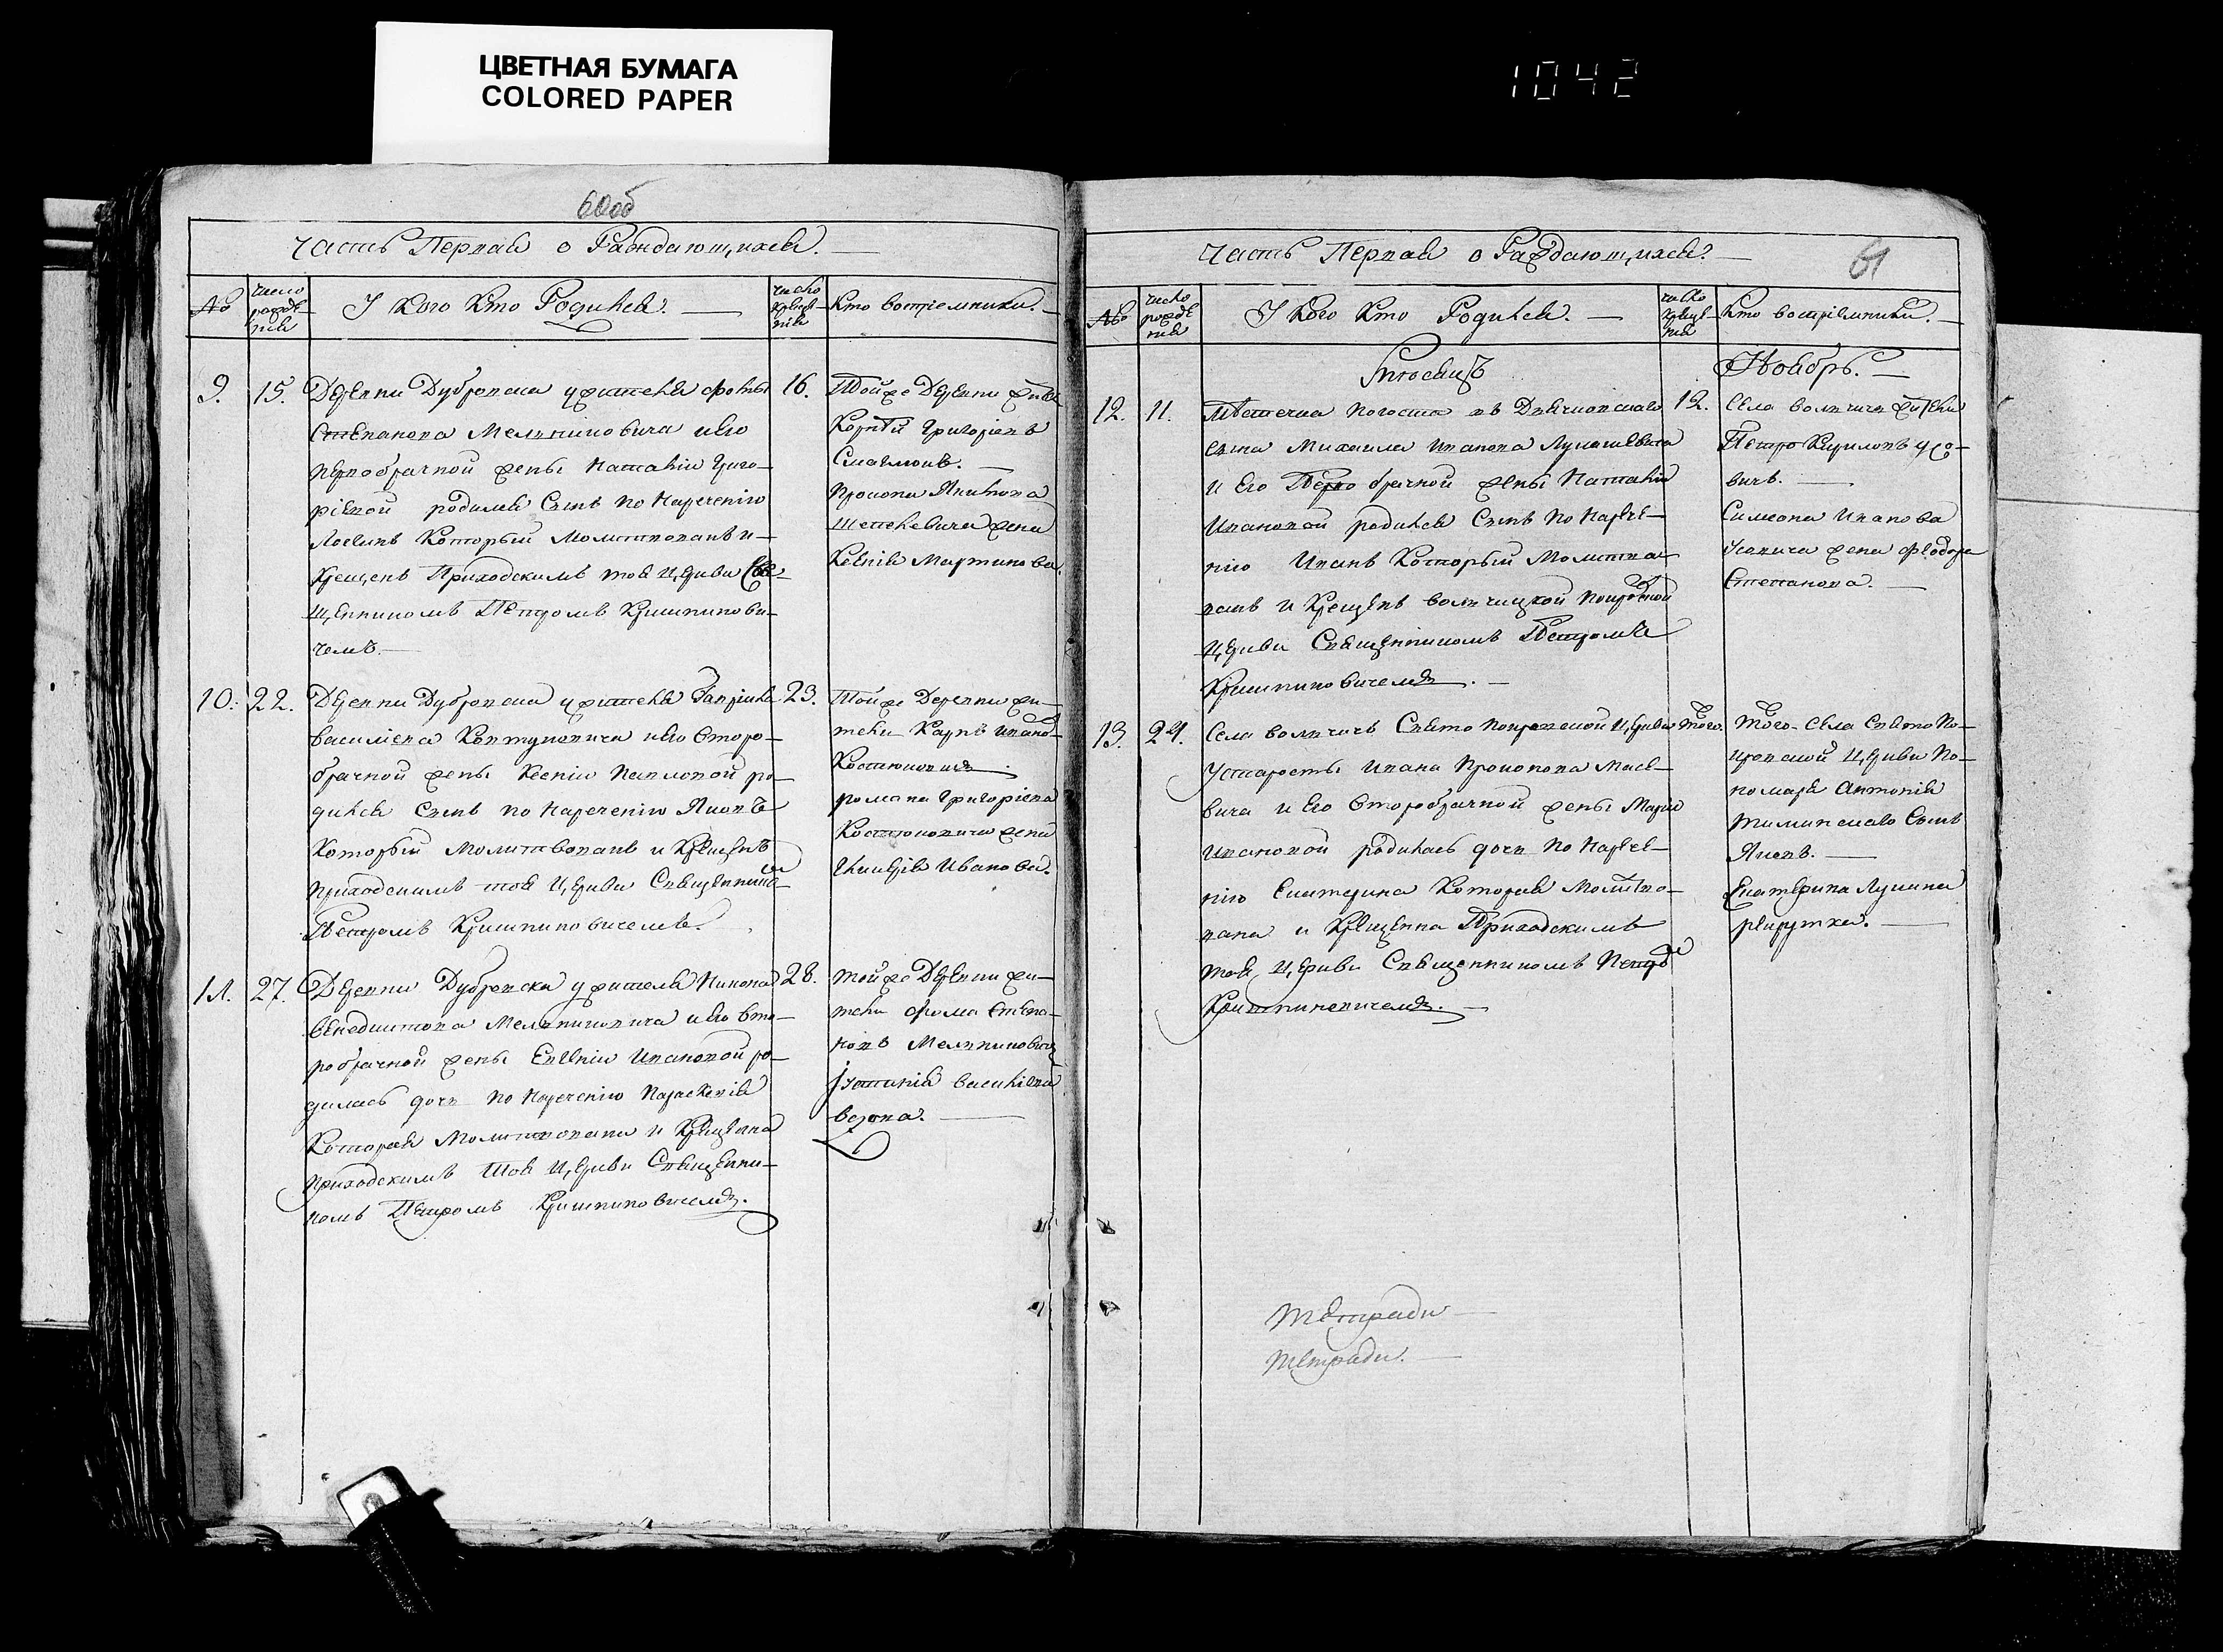 ЦВЕТНАЯ БУМАГА
COLORED PAPER
1042
60об
Часть Первая о Раждающихся.
№
число рожде ния
У кого кто Родился.
число креще ния
Кто восприемники.
9. 15.
Деревни Дубровска у жителя Фомы
Степанова Мельниковича и его
первобрачной жены Наталіи Григо-
ріевой родился сынъ по нареченію
Который молитвованъ и
крещенъ Приходскимъ тоя церкви Свя-
щенникомъ Петромъ Кришпинови-
чемъ.
16.
Тойже Деревни
Григоріевъ
жена
Ксенія Мартинова.
10. 22.
Деревни Дубровска у жителя Гавріила
василіева и его второ-
брачной жены Ксеніи Павловой ро-
дился сынъ по нареченію Яковъ
который молитвованъ и крещенъ
приходскимъ тоя церкви Священнико
Петромъ Кришпиновичемъ.
23.
Тойже Деревни жи-
тель Карпъ Ивано
романа Григоріева
жена
Ивановва.
11. 27.
Деревни Дубровска у жителя Никона
венедиктова Мельниковича и его вто-
робрачной жены Евгеніи Ивановой ро-
дилась дочь по нареченію Параскевія
Которая молитвована и крещена
приходскимъ тоя церкви Священни-
комъ Петромъ Кришпиновичемъ.
28.
тойже Деревни жи-
тель Фома Степа-
новъ Мельниковичъ
Іустинія василіева
61
Часть Первая о Раждающихся.
№
число рожде ния
У кого кто Родился.
число креще ния
Кто восприемники.
Мѣсяцъ Ноябрь.
12. 11.
Мѣстечка погоста
сына Михаила Иванова Лукашевича
и его Первобрачной жены Наталіи
Ивановой родился сынъ по нарече-
нію Иванъ Который молитво
ванъ и крещенъ величицкой покровской
церкви Священникомъ Петромъ
Кришпиновичемъ.
12.
села величичъ житель
Петро Кириловъ Усо-
вичъ.
Симеона Иванова
Усовича жена Феодора
Степанова.
13. 24.
Села величичъ Свято покровской церкви
у старосты Ивана Прокопова
и его второбрачной жены Маріи
Ивановой родилась дочь по нарече-
нію Екатерина Которая молитво-
вана и крещенна Приходскимъ
тоя церкви Священникомъ Петро
Кришпиновичемъ.
того.
Того села Свято По-
кровской церкви По-
номаря Антонія
сынъ
Яковъ.
Екатерина Лукина
тетради
тетради.